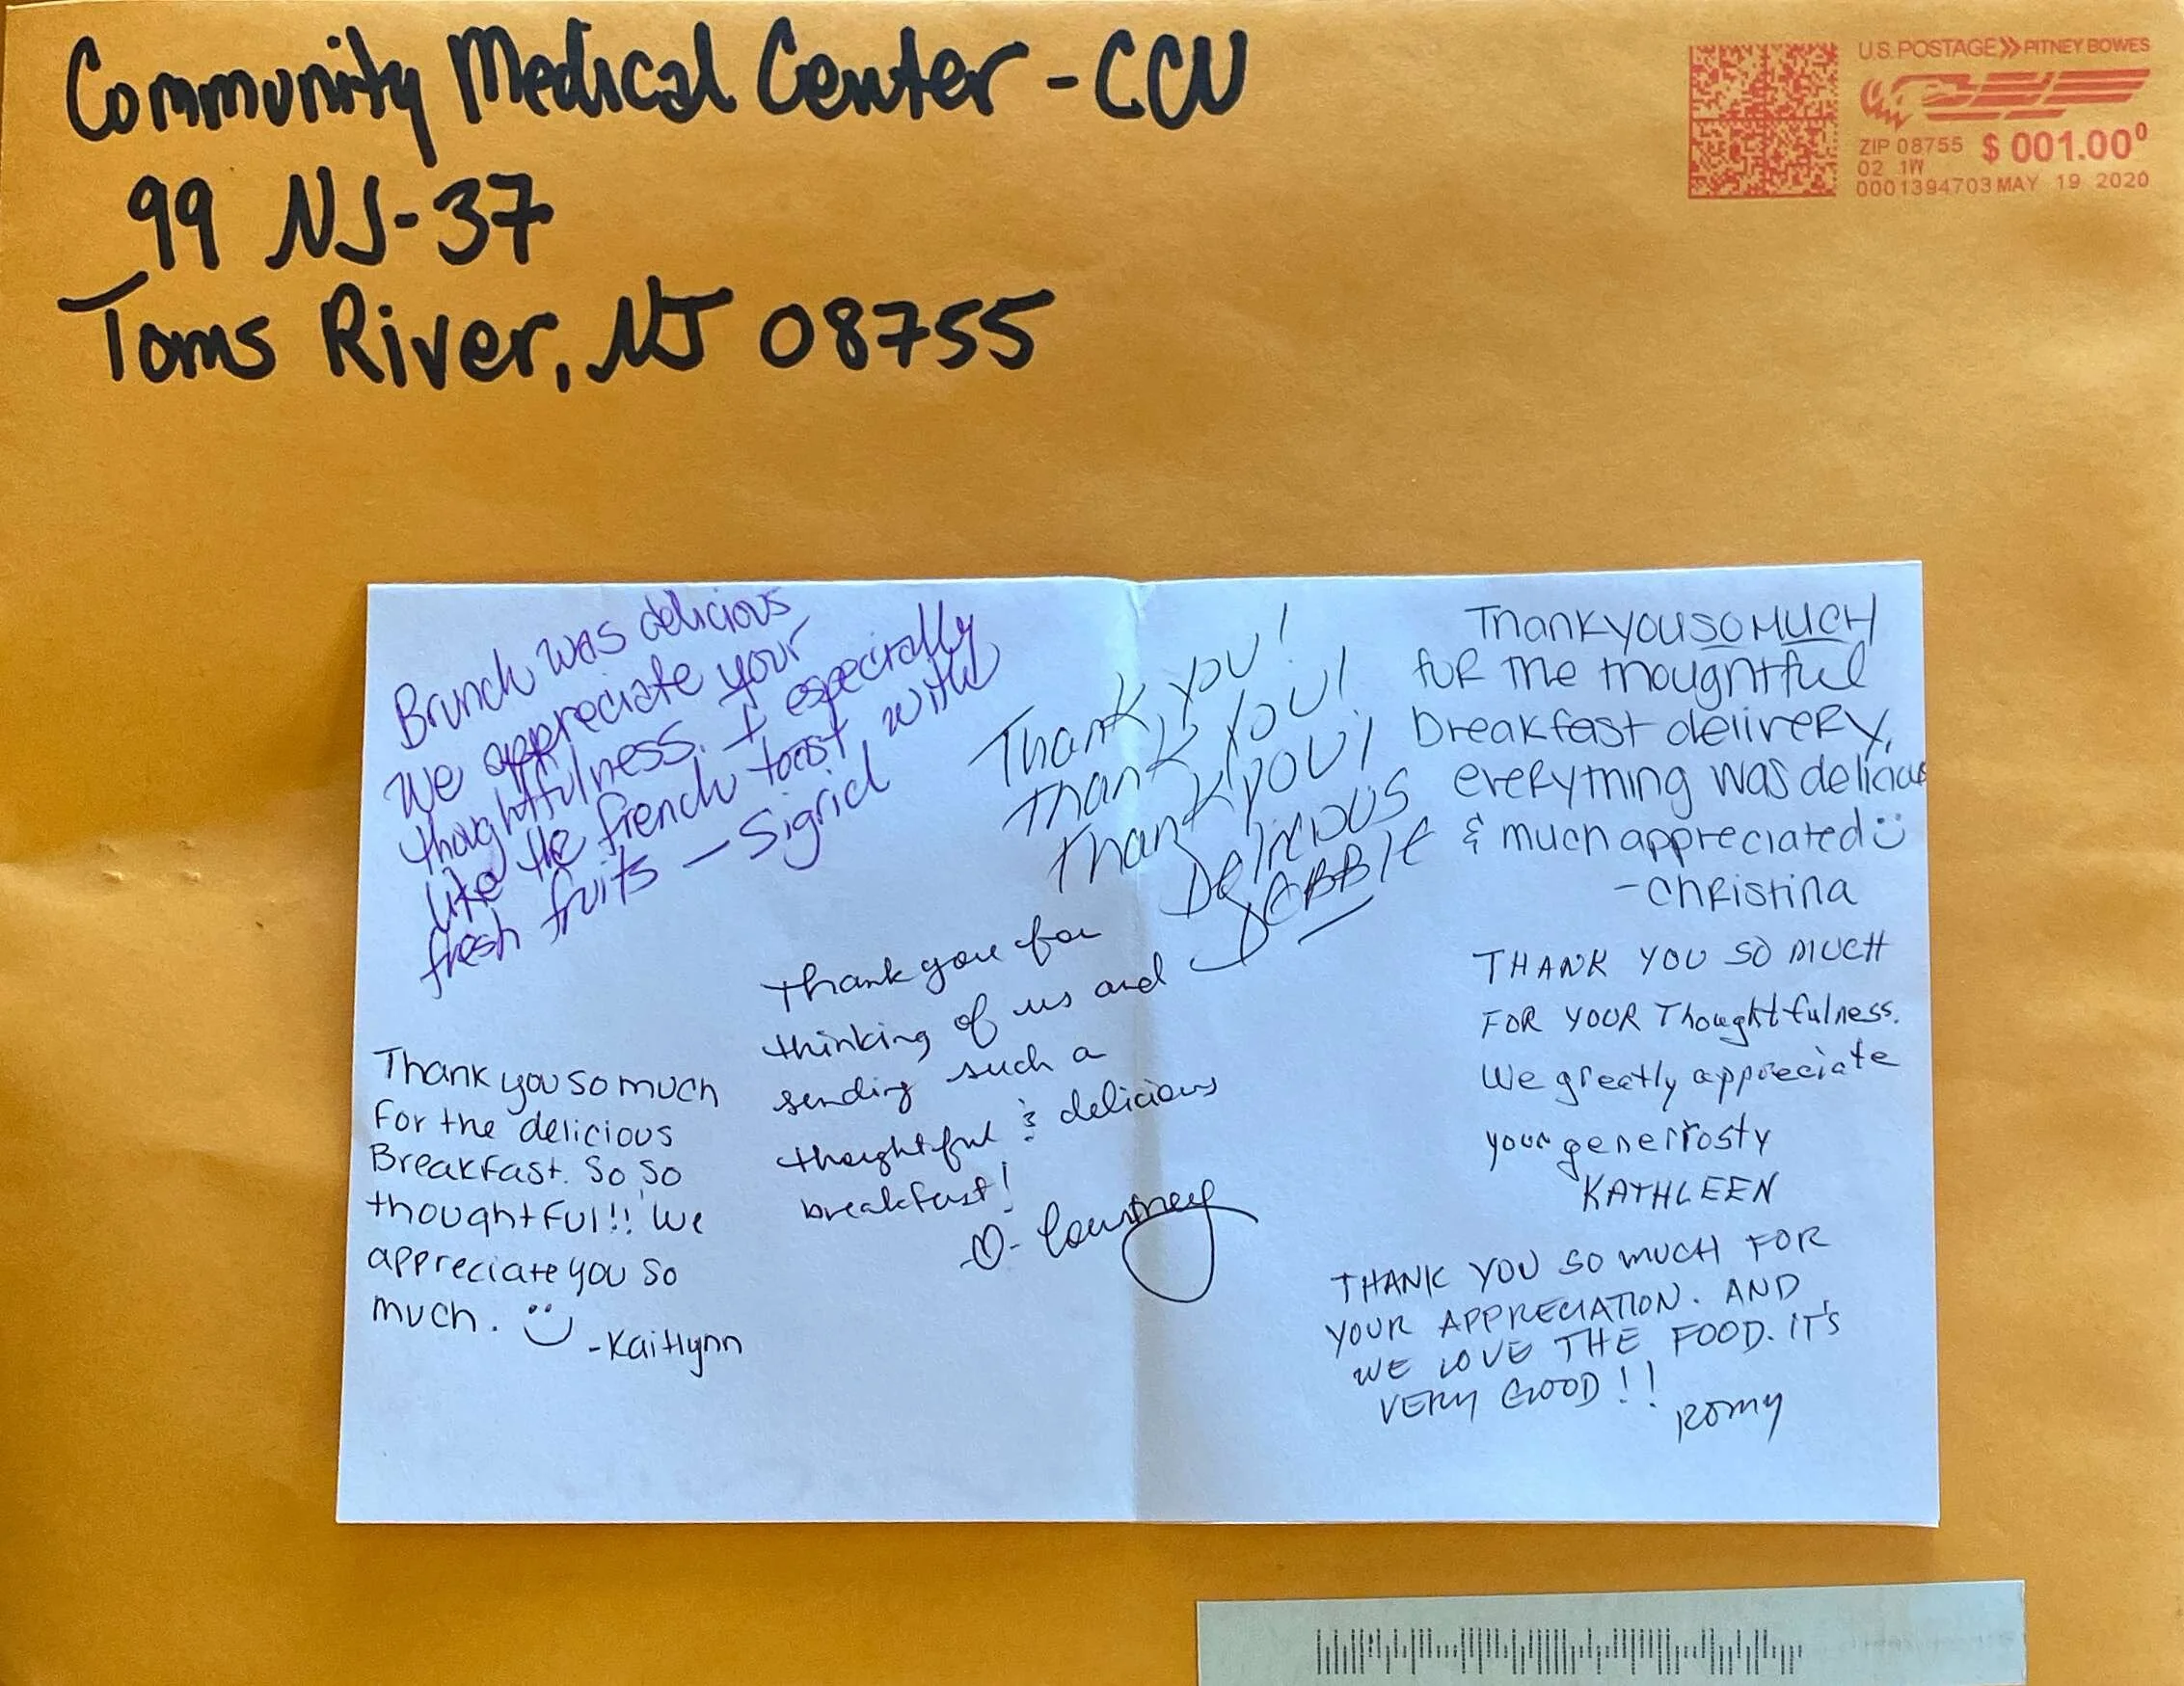 Community Medical Center - CCU
99 NJ-37
Toms River, NJ 08755
U.S. POSTAGE >> PITNEY BOWES
ZIP 08755 $ 001.00⁰
02 1W
0001394703 MAY 19 2020
Brunch was delicious
We appreciate your
thoughtfulness. I especially
like the french toast, with
fresh fruits — Sigrid
Thank you!
Thank you!
Thank you!
Delicious
Thank you SO MUCH
for the thoughtful
breakfast delivery,
everything was delicious
& much appreciated
- Christina
Thank you for
thinking of us and
sending such a
thoughtful & delicious
breakfast!
- Courtney
Thank you so much
For the delicious
Breakfast. So So
thoughtful!! We
appreciate you so
much.
-Kaitlynn
THANK YOU SO MUCH
FOR YOUR Thoughtfulness.
We greatly appreciate
your generrosty
KATHLEEN
THANK YOU SO MUCH FOR
YOUR APPRECIATION. AND
WE LOVE THE FOOD. IT'S
VERY GOOD!!
Romy